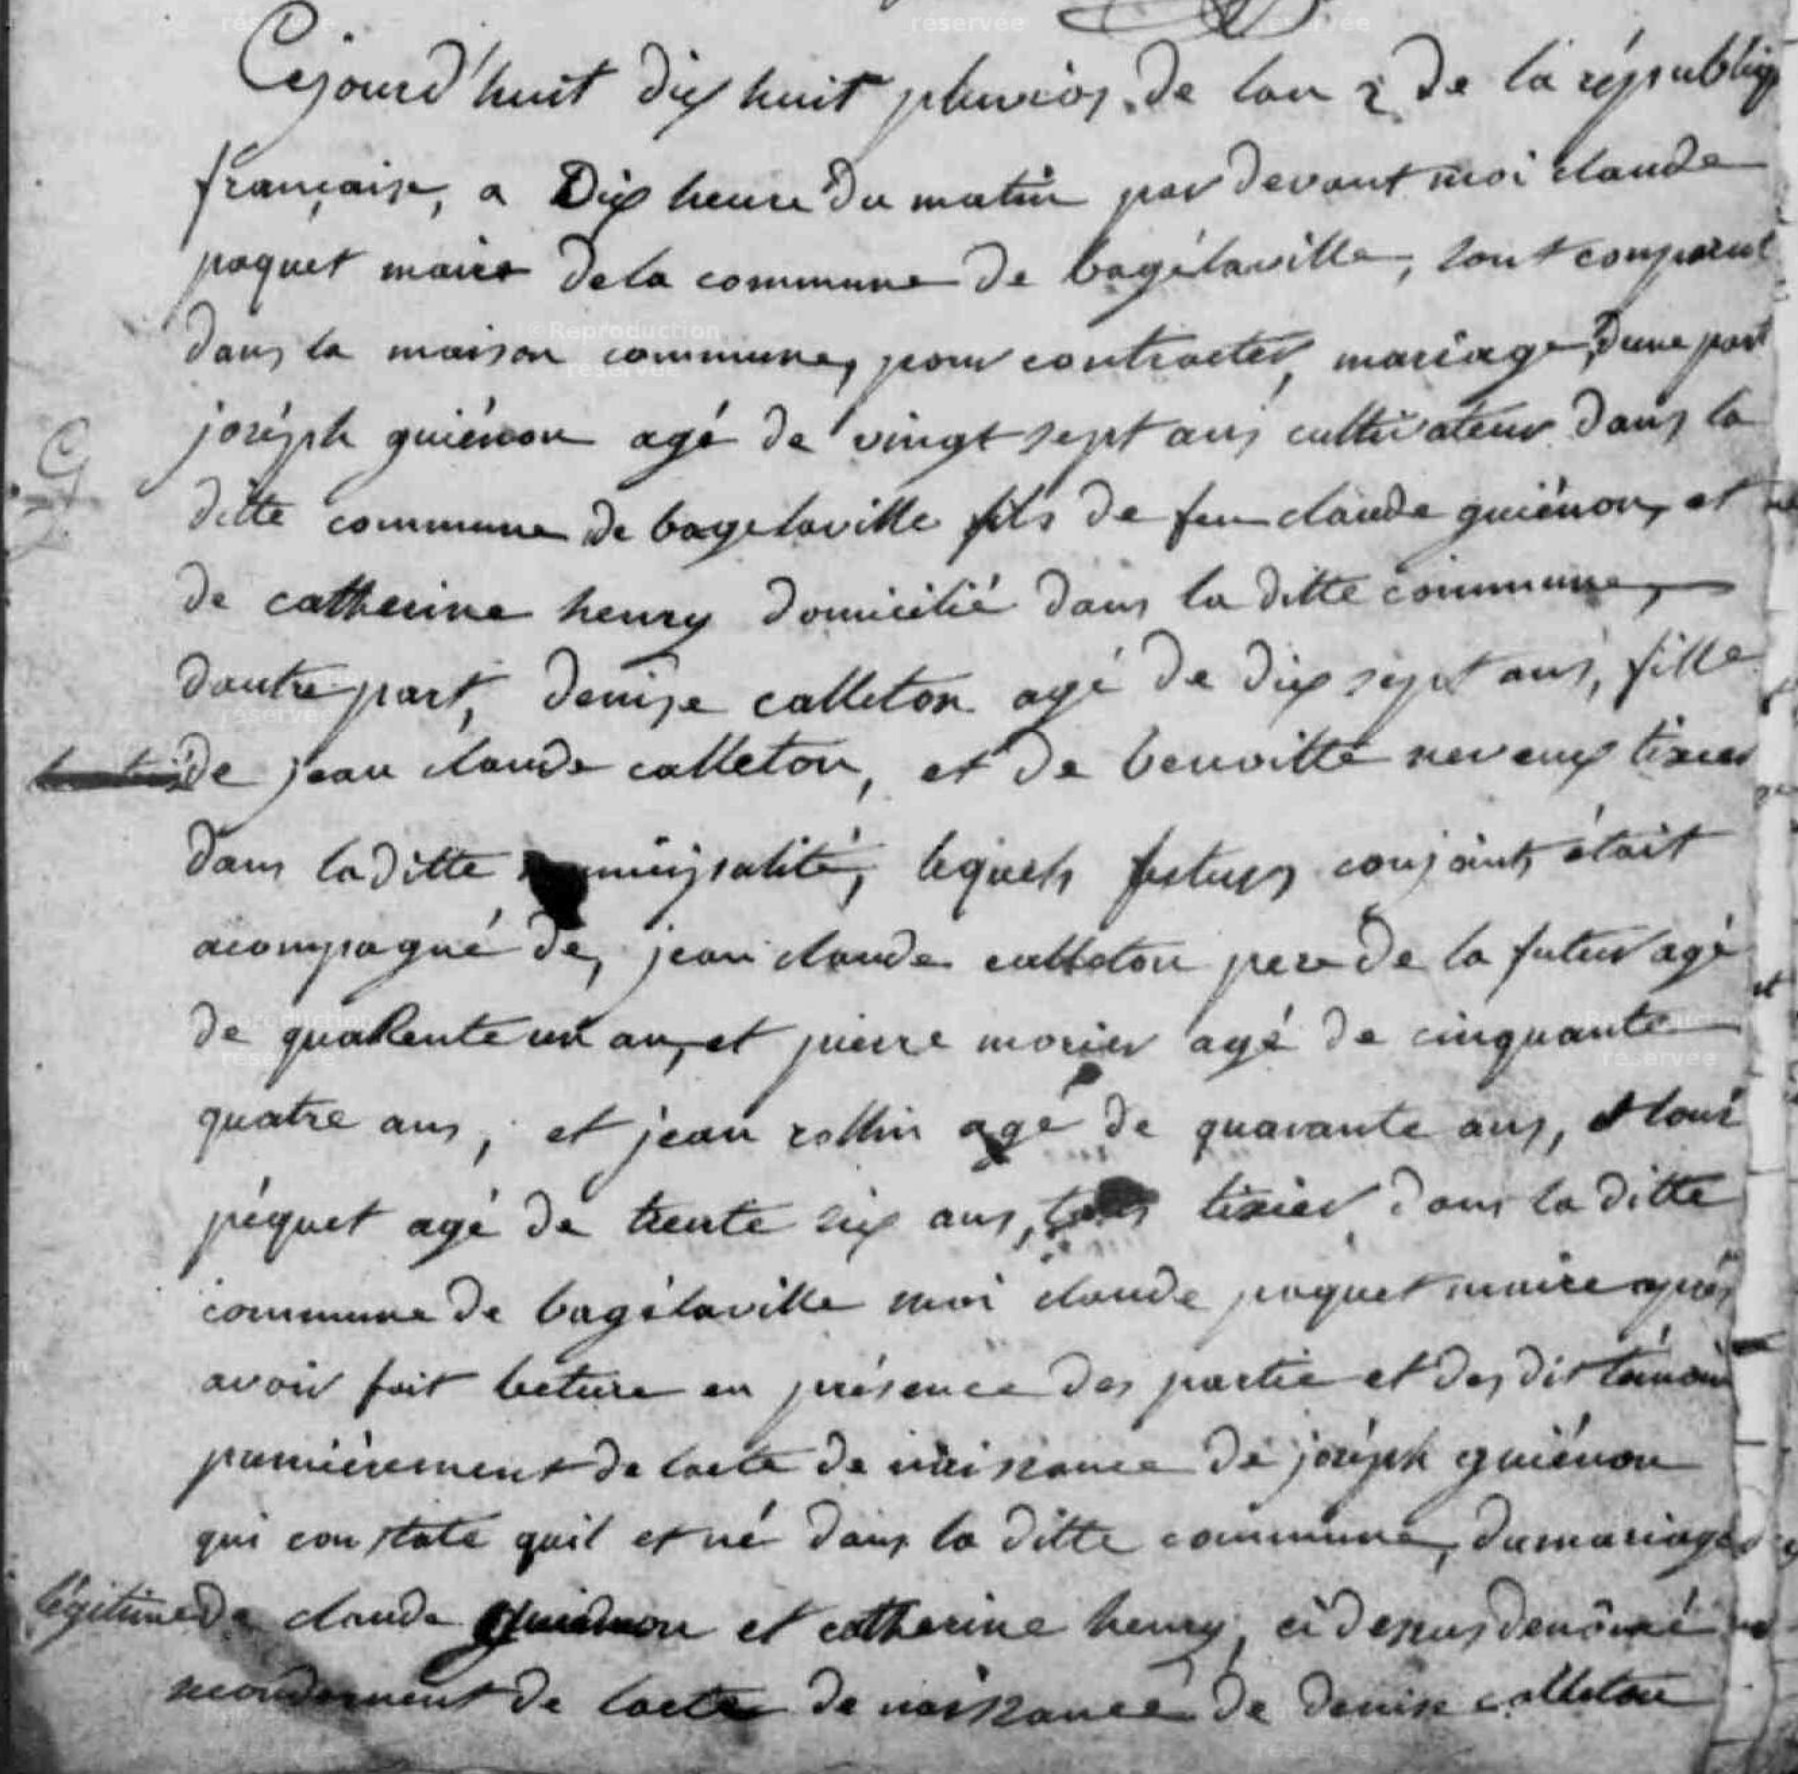 Cejourd'huit dix huit pluvios de lan 2 de la républiq
française, a Dix heure du matin par devant moi claude
paquet maire dela commune de bagélaville, sont comparut
dans la maison commune, pour contracter mariage, dune part
joséph guiénon agé de vingt sept ans cultivateur dans la
ditte commune de bagelaville fils de feu claude guiénon, et
de catherine henry domicilié dans la ditte commune,
dautre part, denise catleton agé de dix sept ans, fille
de jean claude catleton, et de benoitte neveux tixier
dans laditte municipalité, lequels futurs conjoints était
acompagné de, jean claude catleton pere de la futur agé
de quarente un an, et pierre morier agé de cinquante
quatre ans, et jean rollin agé de quarante ans, et loui
péquet agé de trente six ans, tous tixier dans la ditte
commune de bagélaville moi claude paquet maire après
avoir fait lecture en présence des partie et des dit témoin
pamièrement de lacte de naissance de joséph guiénon
qui constate quil et né dans la ditte commune, du mariage
légitime de claude guiénon et catherine henry, ci depus denômé
secondement de lacte de naissance de denise catleton